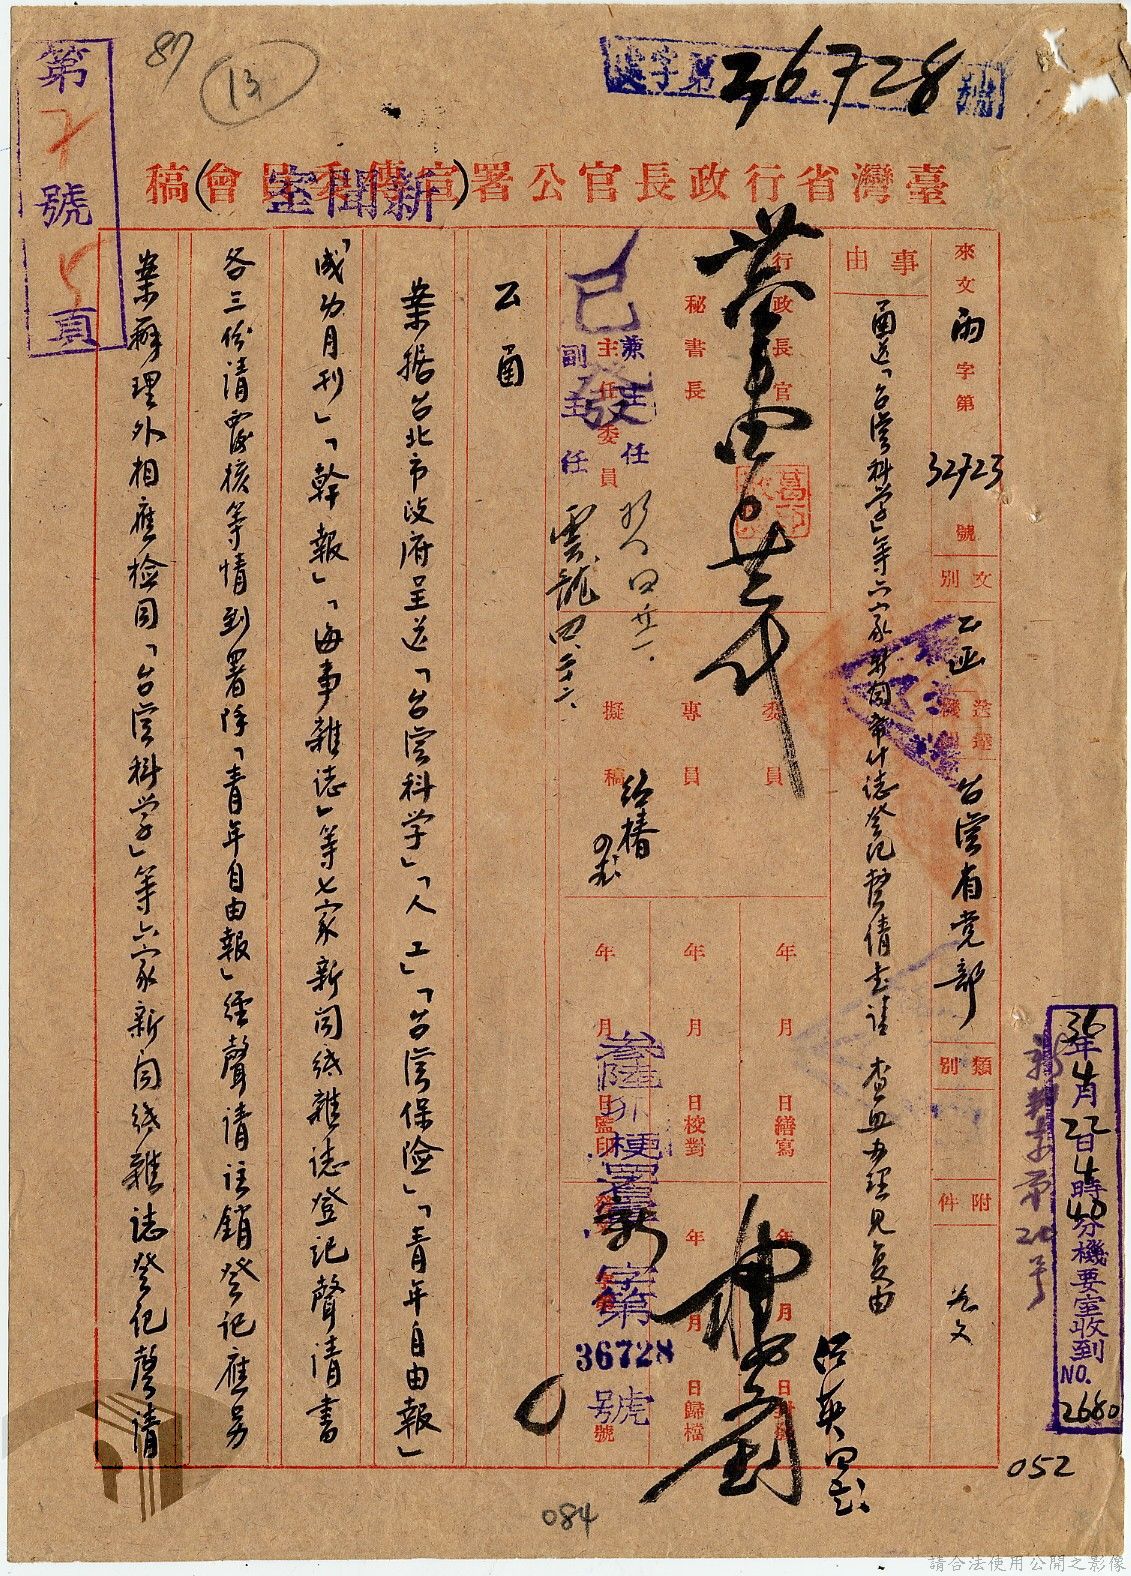 臺灣省行政長官公署宣傳委員會(新聞室)稿
號
36728
87
13
第
號
頁
來文
字第
32723
號
文別
公函
送達機關
台灣省党部
類別
附件
事由
函送「台灣科学」等六家新聞紙什誌登記声請書請 查照办理見复由
行政長官
秘書長
主任委員
兼主任
副主任
已發
委員
專員
擬稿
年 月 日繕寫
年 月 日校對
年 月 日監印
年 月 日歸檔
字第
36728
號
公函
案据台北市政府呈送「台灣科学」「人工」「台灣保險」「青年自由報」
「成功月刊」「幹報」「海事雜誌」等七家新聞紙雜誌登記聲請書
各三份請核等情到署除「青年自由報」經聲請註銷登記應另
案辦理外相應檢同「台灣科学」等六家新聞紙雜誌登記聲請
36年4月22日4時40分機要室收到
NO. 2680
052
084
請合法使用公開之影像